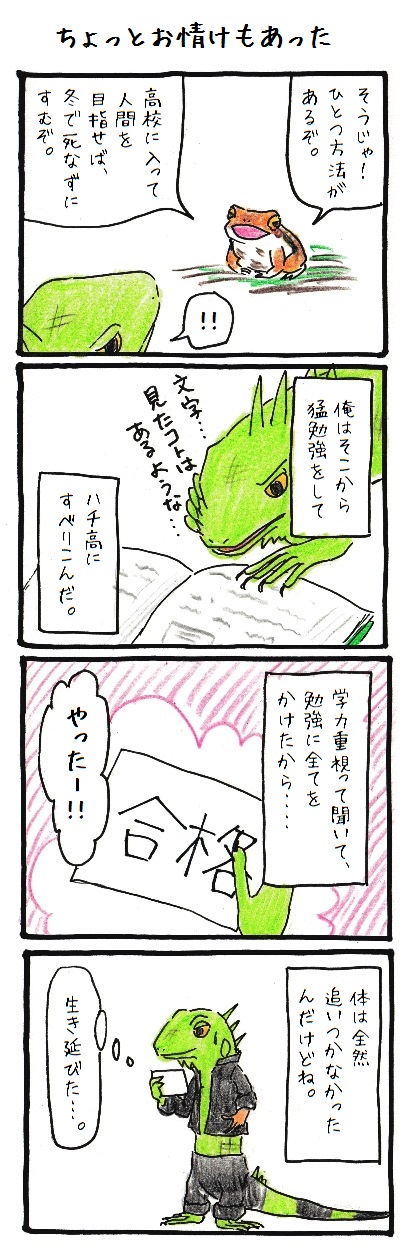 ちょっとお情けもあった
そうじゃ!
ひとつ方法が
あるぞ。
高校に入って
人間を
目指せば、
冬で死なずに
すむぞ。
!!
俺はそこから
猛勉強をして
文字…
見たコトは
あるような…
ハチ高に
すべりこんだ。
学力重視って聞いて、
勉強に全てを
かけたから・・・・
やったー!!
合格
体は全然
追いつかなかった
んだけどね。
生き延びた…。